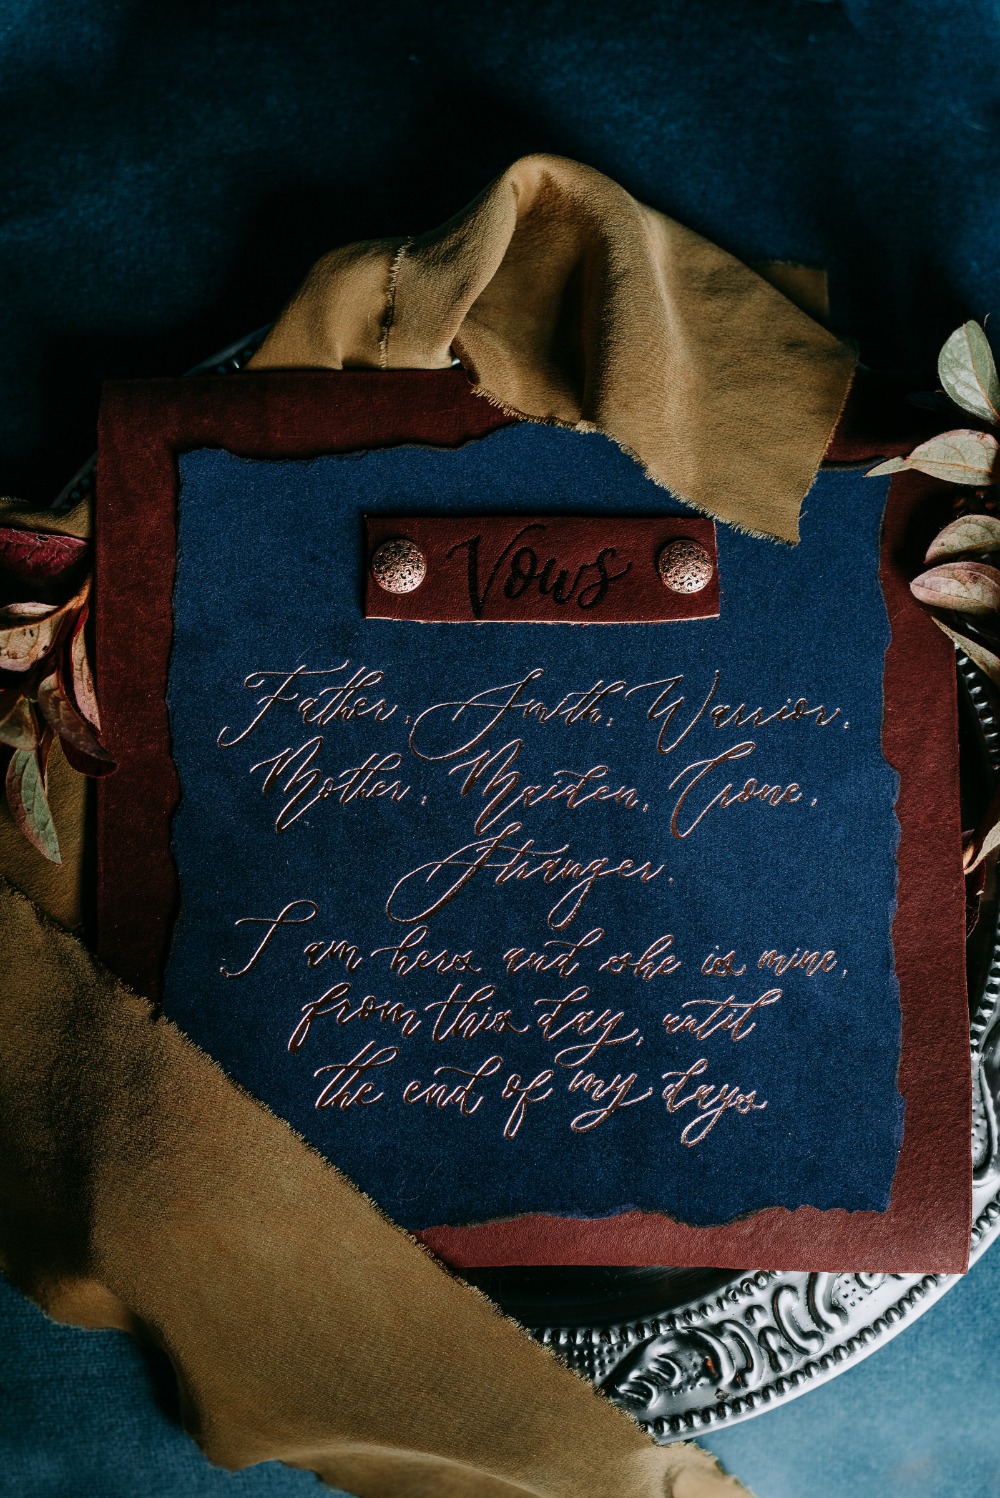 Vows
Father, Smith, Warrior,
Mother, Maiden, Crone,
Stranger.
I am hers and she is mine,
from this day, until
the end of my days